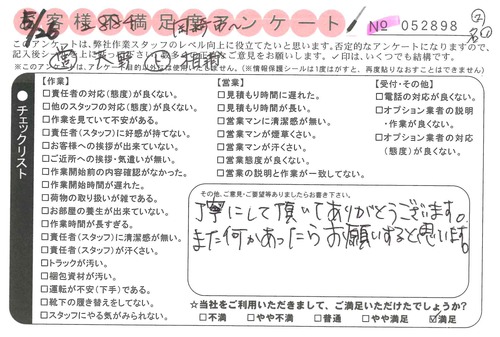 5/26
お客様不満足度アンケート
No 052898
このアンケートは、弊社作業スタッフのレベル向上に役立てたいと思います。否定的なアンケートになりますので、
※このアンケートは、アンケート目的以外は使用いたしません。(※情報保護シールは1度はがすと、再度貼りなおすことはできません)
チェックリスト
【作業】
□責任者の対応(態度)が良くない。
□他のスタッフの対応(態度)が良くない。
□作業を見ていて不安がある。
□責任者(スタッフ)に好感が持てない。
□お客様への挨拶が出来ていない。
□ご近所への挨拶・気遣いが無い。
□作業開始前の内容確認がなかった。
□作業開始時間が遅れた。
□荷物の取り扱いが雑である。
□お部屋の養生が出来ていない。
□作業時間が長すぎる。
□責任者(スタッフ)に清潔感が無い。
□責任者(スタッフ)が汗くさい。
□トラックが汚い。
□梱包資材が汚い。
□運転が不安(下手)である。
□靴下の履き替えをしてない。
□スタッフにやる気がみられない。
【営業】
□見積もり時間に遅れた。
□見積もり時間が長い。
□営業マンに清潔感が無い。
□営業マンが煙草くさい。
□営業マンが汗くさい。
□営業態度が良くない。
□営業の説明と作業が一致してない。
【受付・その他】
□電話の対応が良くない。
□オプション業者の説明
・作業が良くない。
□オプション業者の対応
(態度)が良くない。
その他、ご意見・ご要望等ありましたらお書き下さい。
丁寧にして頂いてありがとうございます。
また何かあったらお願いすると思います。
☆当社をご利用いただきまして、ご満足いただけたでしょうか?
□不満 □やや不満 □普通 □やや満足 ☑満足